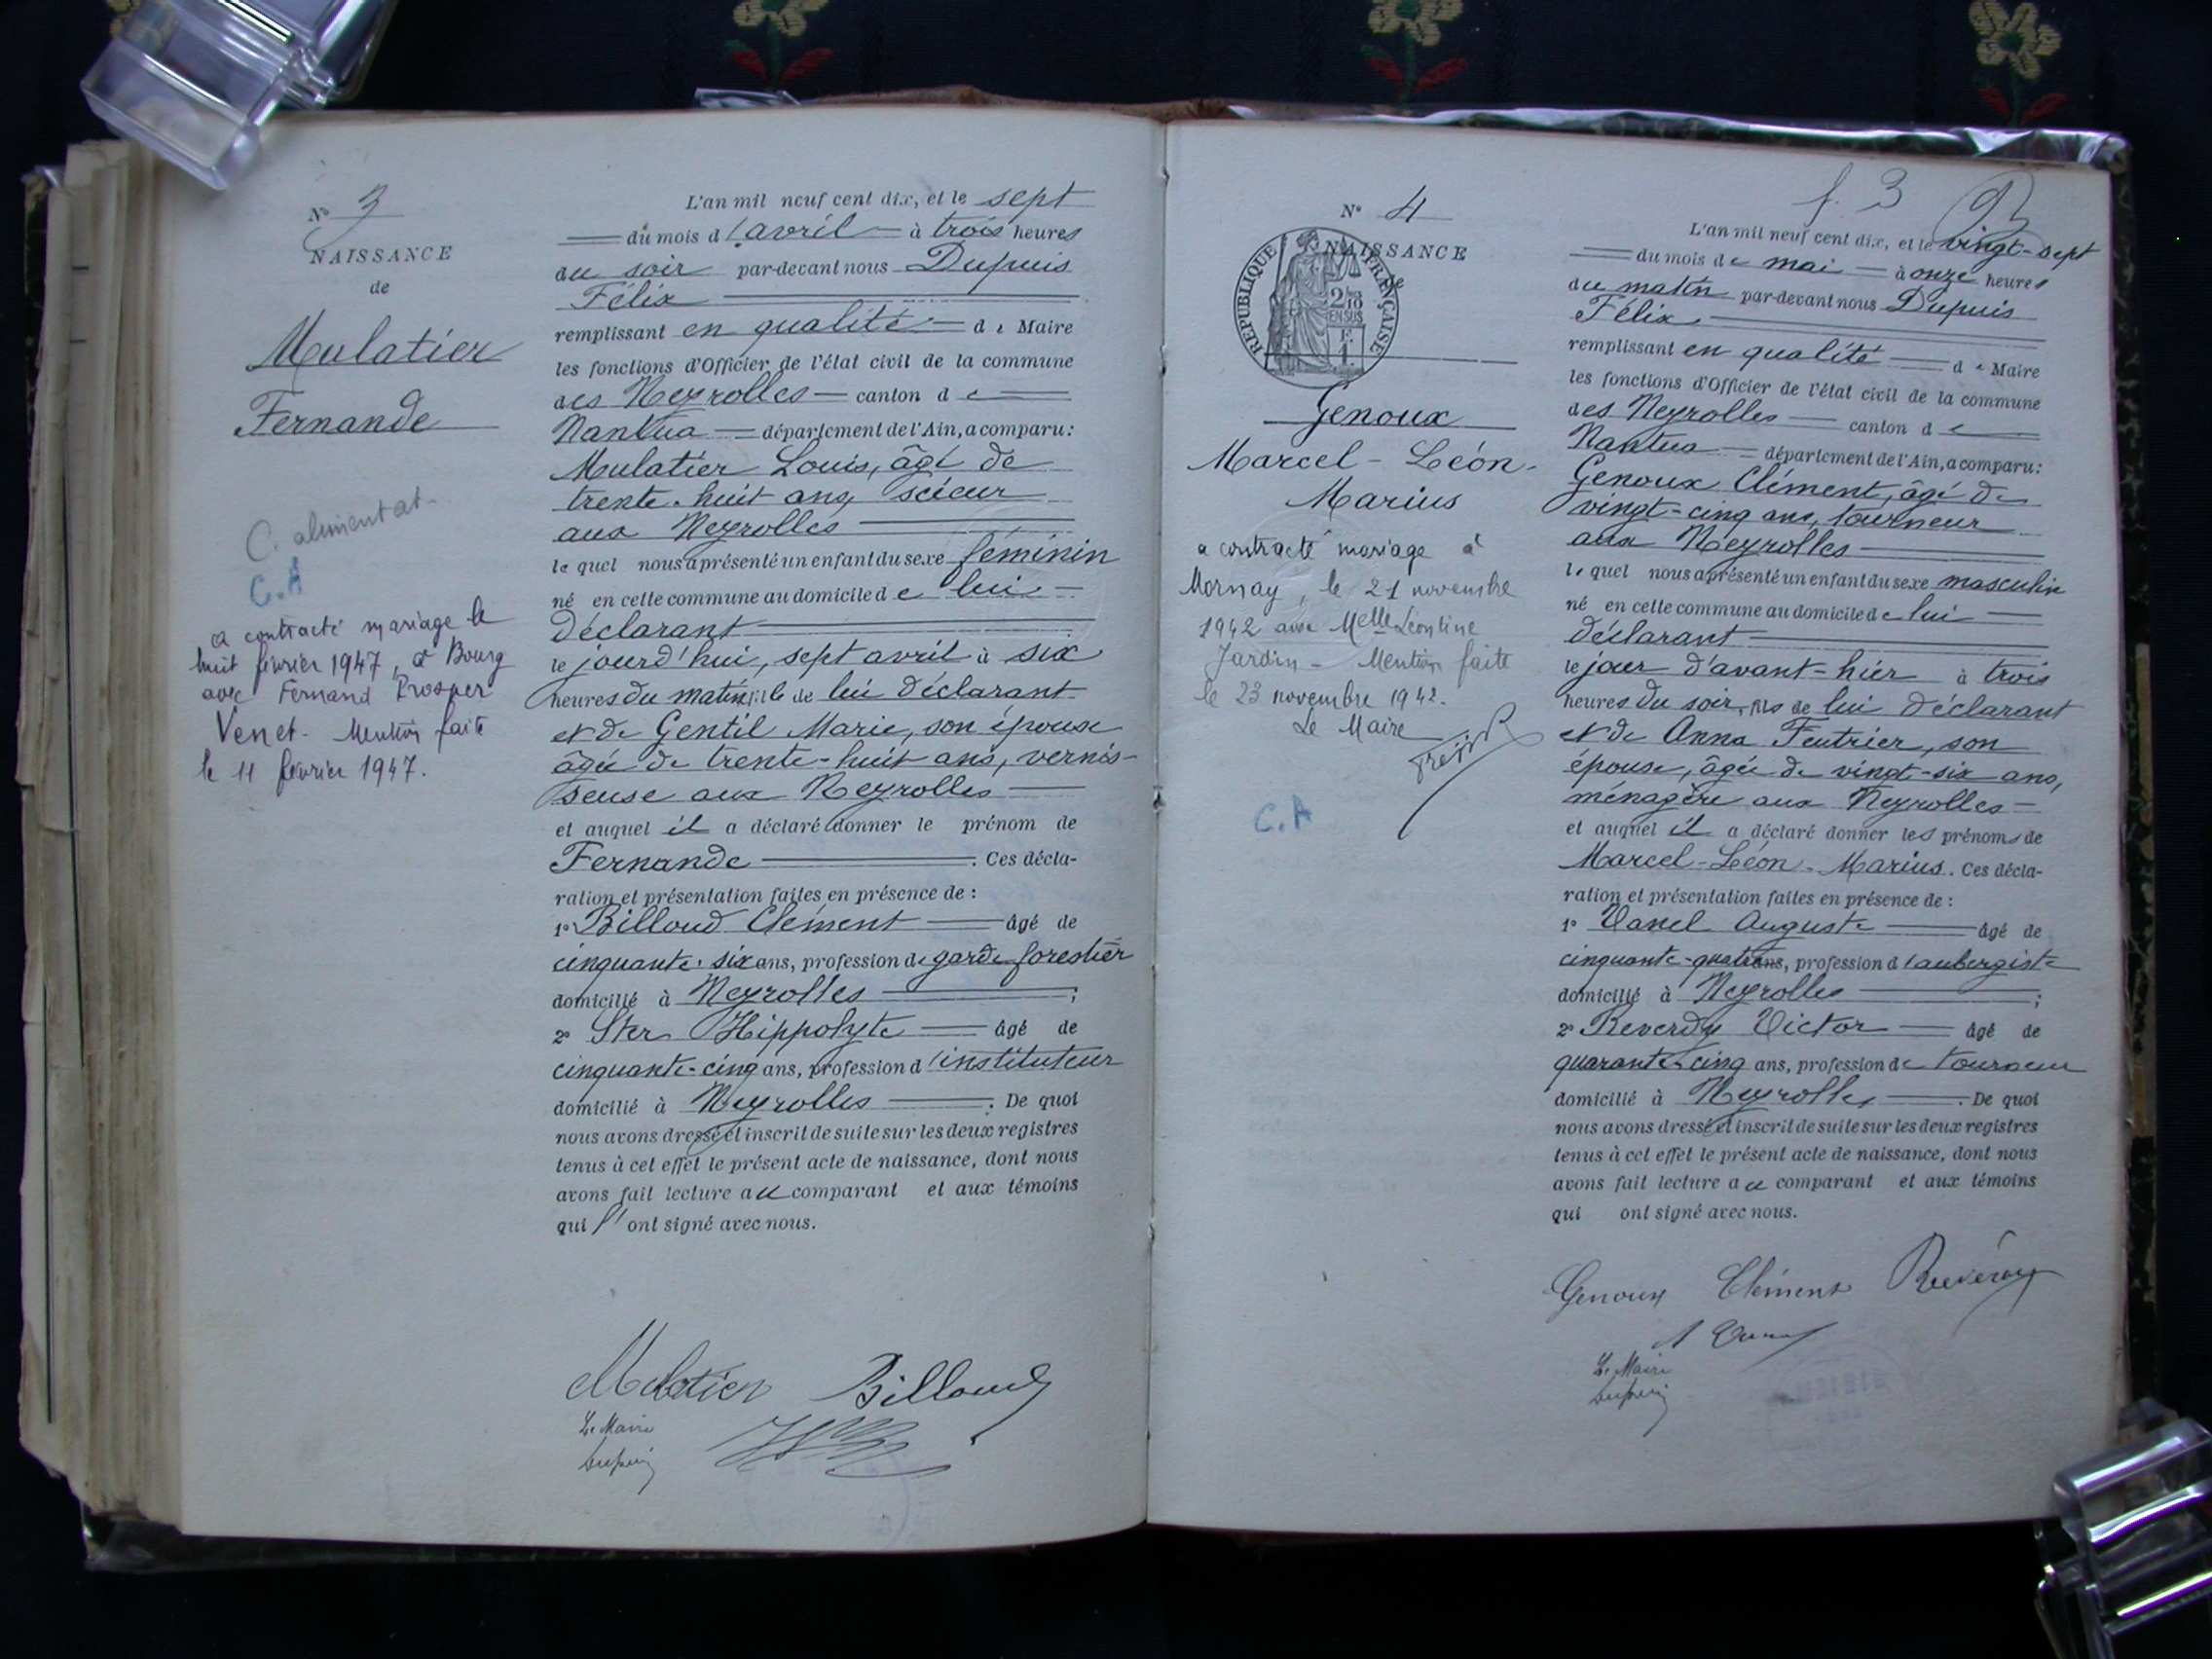 N° 3
NAISSANCE
de
Mulatier
Fernande
C. alimentat.
C.A
a contracté mariage le
huit février 1947, à Bourg
avec Fernand Prosper
Venet. Mention faite
le 11 février 1947.
L'an mil neuf cent dix, et le sept
du mois d'avril à trois heures
du soir par-devant nous Dupuis
Félix
remplissant en qualité de Maire
les fonctions d'Officier de l'état civil de la commune
des Neyrolles canton de
Nantua département de l'Ain, a comparu:
Mulatier Louis, âgé de
trente-huit ans, scieur
aux Neyrolles
lequel nous a présenté un enfant du sexe féminin
né en cette commune au domicile de lui
déclarant
le jourd'hui, sept avril à six
heures du matin, fille de lui déclarant
et de Gentil Marie, son épouse
âgée de trente-huit ans, vernis-
seuse aux Neyrolles
et auquel il a déclaré donner le prénom de
Fernande. Ces décla-
ration et présentation faites en présence de :
1° Billoud Clément âgé de
cinquante-six ans, profession de garde forestier
domicilié à Neyrolles ;
2° Ster Hippolyte âgé de
cinquante-cinq ans, profession d'instituteur
domicilié à Neyrolles. De quoi
nous avons dressé et inscrit de suite sur les deux registres
tenus à cet effet le présent acte de naissance, dont nous
avons fait lecture au comparant et aux témoins
qui l'ont signé avec nous.
Mulatier Billoud
Le Maire
Dupuis
f. 3
N° 4
NAISSANCE
de
REPUBLIQUE FRANÇAISE
2/10 EN SUS
F.
1.
Genoux
Marcel-Léon-
Marius
a contracté mariage à
Mornay, le 21 novembre
1942 avec Melle Léontine
Jardin - Mention faite
le 23 novembre 1942.
Le Maire
C.A
L'an mil neuf cent dix, et le vingt-sept
du mois de mai à onze heures
du matin par-devant nous Dupuis
Félix
remplissant en qualité de Maire
les fonctions d'Officier de l'état civil de la commune
des Neyrolles canton de
Nantua département de l'Ain, a comparu:
Genoux Clément, âgé de
vingt-cinq ans, tourneur
aux Neyrolles
lequel nous a présenté un enfant du sexe masculin
né en cette commune au domicile de lui
déclarant
le jour d'avant-hier à trois
heures du soir, fils de lui déclarant
et de Anna Feutrier, son
épouse, âgée de vingt-six ans,
ménagère aux Neyrolles
et auquel il a déclaré donner les prénoms de
Marcel-Léon-Marius. Ces décla-
ration et présentation faites en présence de :
1° Vanel Auguste âgé de
cinquante-quatre ans, profession d'aubergiste
domicilié à Neyrolles ;
2° Reverdy Victor âgé de
quarante-cinq ans, profession de tourneur
domicilié à Neyrolles. De quoi
nous avons dressé et inscrit de suite sur les deux registres
tenus à cet effet le présent acte de naissance, dont nous
avons fait lecture au comparant et aux témoins
qui ont signé avec nous.
Genoux Clément Reverdy
Le Maire
Dupuis